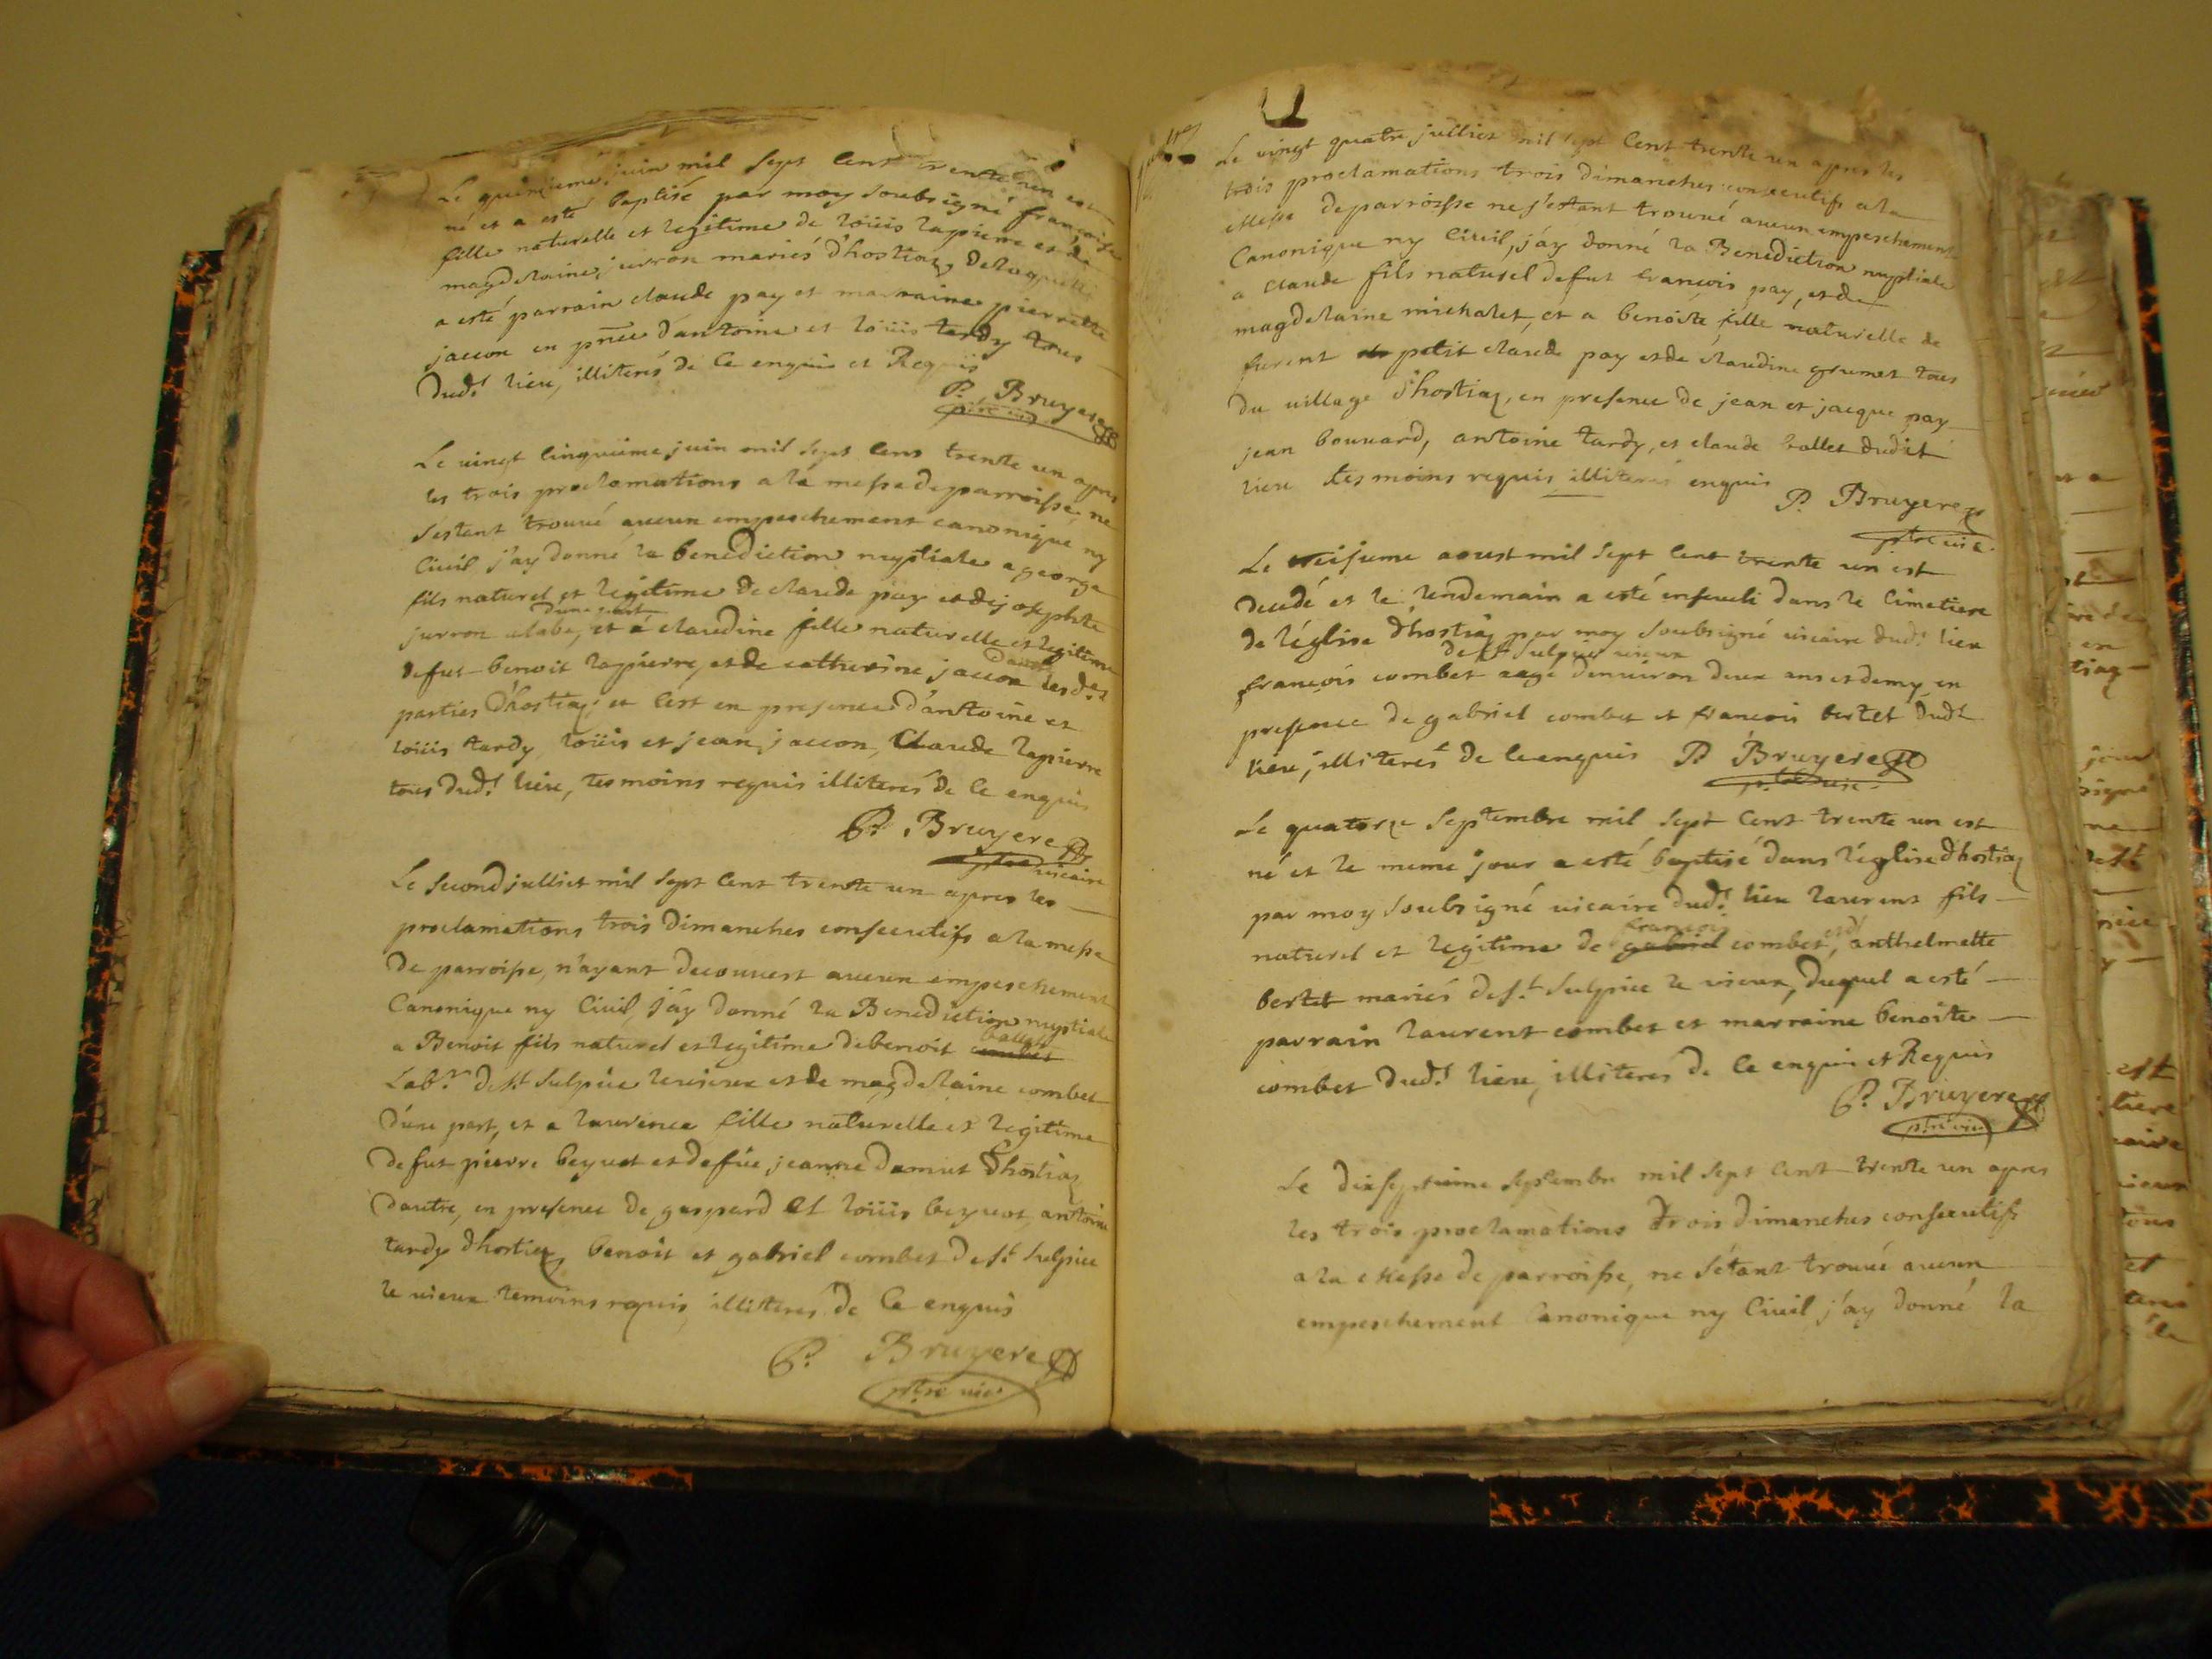 Le quinzieme juin mil sept cent trente un est
né et a esté baptisé par moy soubsigné françoise
fille naturelle et legitime de loüis lapierre et de
magdelaine jurron mariés d'hostiaz, de laquelle
a esté parrain claude pay et marraine pierrette
jacson en pnce d'antoine et loüis tardy tous
dudt lieu, illiterés de ce enquis et Requis
P. Bruyere
ptre vic
Le vingt cinquieme juin mil sept cens trente un apres
les trois proclamations a la messe de parroisse, ne
s'estant trouvé aucun empeschement canonique ny
Civil j'ay donné la benediction nuptiale a george
fils naturel et legitime de claude pay et de josephte
d'une part
jurron, et a claudine fille naturelle et legitime
d'autre
de fut benoit lapierre, et de catherine jacson les des
parties d'hostiaz; et c'est en presence d'antoine et
loüis tardy, loüis et jean jacson, Claude lapierre
tous dudt lieu, tesmoins requis illiterés de ce enquis
P. Bruyere
ptre vicaire
Le second julliet mil sept cent trente un apres les
proclamations trois dimanches consecutifs a la messe
de parroisse, n'ayant decouvert aucun empeschement
Canonique ny Civil, j'ay donné la Benediction nuptiale
ballet
a Benoit fils naturel et legitime de benoit combet
Labr de st Sulpice le vieux et de magdelaine combet
d'une part, et a laurence fille naturelle et legitime
de fut pierre beguet et de füe jeanne dumut d'hostiaz
d'autre, en presence de gaspard et loüis beguet, antoine
tardy d'hostiaz, benoit et gabriel combet de st Sulpice
le vieux temoins requis, illiterés de ce enquis
P. Bruyere
ptre vic
Le vingt quatre julliet mil sept cent trente un apres les
trois proclamations trois dimanches consecutifs a la
Messe de parroisse ne s'estant trouvé aucun empeschement
Canonique ny Civil, j'ay donné la Benediction nuptiale
a claude fils naturel de fut françois pay, et de
magdelaine michalet, et a benoite fille naturelle de
furent petit claude pay et de claudine grumet tous
du village d'hostiaz, en presence de jean et jacque pay
jean bouvard, antoine tardy, et claude ballet dudit
lieu tesmoins requis illiterés enquis
P. Bruyere
ptre vic.
Le aoust mil sept cent trente un est
decedé et le lendemain a esté enseveli dans le cimetiere
de l'église d'hostiaz par moy soubsigné vicaire dudt lieu
de st Sulpice vieux
françois combet aagé d'environ deux ans et demy, en
presence de gabriel combet et francois bertet dudt
lieu, illiterés de ce enquis P. Bruyere
ptre vic.
Le quatorze Septembre mil sept cent trente un est
né et le meme jour a esté baptisé dans l'église d'hostiaz
par moy soubsigné vicaire dudt lieu laurent fils
françois et d'
naturel et legitime de gabriel combet, anthelmette
bertet mariés de st Sulpice le vieux, duquel a esté
parrain laurent combet et marraine benoite
combet dudt lieu, illiterés de ce enquis et Requis
P. Bruyere
ptre vic
Le dixseptieme septembre mil sept cent trente un apres
les trois proclamations trois dimanches consecutifs
a la Messe de parroisse, ne s'étant trouvé aucun
empeschement Canonique ny Civil j'ay donné la